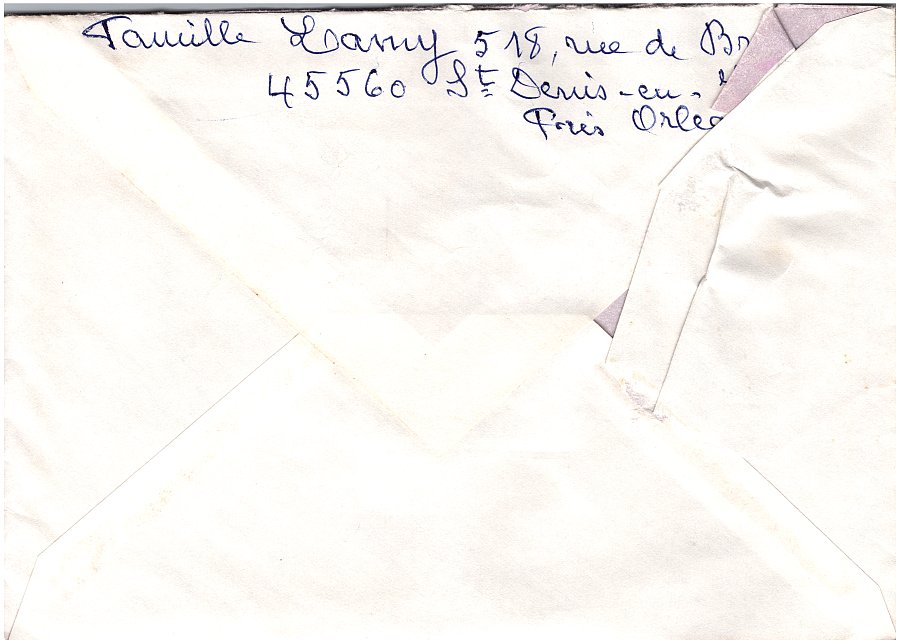 Famille Lamy 518, rue de Br
45560 St Denis-en-
Près Orléa